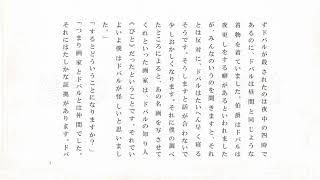 ずドバルが殺されたのは夜中の四時で
あるのに、ドバルは昼間と同じような
着物を着ていました。伯爵はドバルは
夜更しをする癖があるといわれました
が、みんなのいうのを聞きますと、それ
とは反対に、ドバルはたいへん早く寝る
そうです。そうしますと話が合わないで
少しおかしくなります。それに僕の調べ
たところによると、あの名画を写させて
くれといった画家は、ドバルの知り人
《びと》だったということです。それでい
よいよ僕はドバルが怪しいと思いまし
た。」
「するとどういうことになりますか？」
「つまり画家とドバルとは仲間でした。
それにはたしかな証拠があります。ドバ